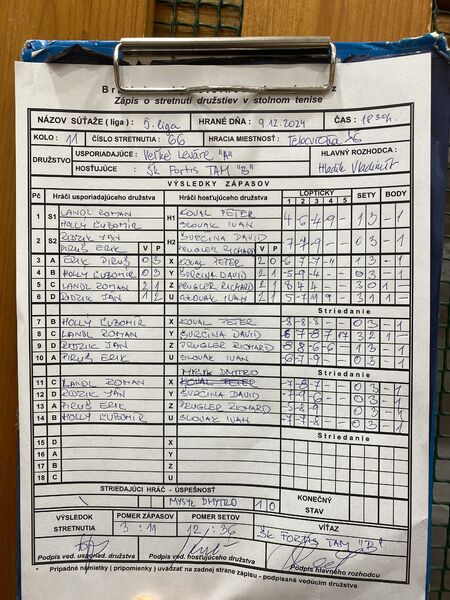 Zápis o stretnutí družstiev v stolnom tenise
NÁZOV SÚŤAŽE ( liga ) : 5. liga HRANÉ DŇA : 9.12.2024 ČAS :
KOLO : 11 ČÍSLO STRETNUTIA : 66 HRACIA MIESTNOSŤ :
DRUŽSTVO USPORIADAJÚCE : Veľké Leváre "A" HLAVNÝ ROZHODCA :
HOSŤUJÚCE : ŠK FORTIS TAM "B" Hladík Vladimír
VÝSLEDKY ZÁPASOV
Pč Hráči usporiadajúceho družstva Hráči hosťujúceho družstva LOPTIČKY SETY BODY
1 2 3 4 5
1 S1 LANDL ROMAN H1 KOVAL PETER 4 -6 -4 -9 - 1 3 - 1
HOLLY ĽUBOMÍR SLOVAK IVAN
2 S2 RIDZIK JÁN H2 ŠURČINA DAVID -7 -7 -9 - - 0 3 - 1
PIRUŠ ERIK V P PREUGLER RICHARD V P
3 A ERIK PIRUŠ 0 3 X KOVAL PETER 2 0
4 B HOLLY ĽUBOMÍR 0 3 Y ŠURČINA DAVID 2 1 -5 -9 -4 - - 0 3 - 1
5 C LANDL ROMAN 2 1 Z PREUGLER RICHARD 2 1 8 4 4 - - 3 0 1 -
6 D RIDZIK JÁN 1 2 U SLOVAK IVAN 2 1
Striedanie
7 B HOLLY ĽUBOMIR X KOVAL PETER -8 -8 -8 - - 0 3 - 1
8 C LANDL ROMAN Y ŠURČINA DAVID
9 D RIDZIK JÁN Z PREUGLER RICHARD
10 A PIRUŠ ERIK U SLOVAK IVAN -6 -7 -9 - - 0 3 - 1
Striedanie
MYSYK DMYTRO
11 C LANDL ROMAN X KOVAL PETER -7 -8 -7 - - 0 3 - 1
12 D RIDZIK JÁN Y ŠURČINA DAVID -7 -9 -6 - - 0 3 - 1
13 A PIRUŠ ERIK Z PREUGLER RICHARD -5 -8 -9 - - 0 3 - 1
14 B HOLLY ĽUBOMIR U SLOVAK IVAN -7 -7 -8 - - 0 3 - 1
Striedanie
15 D X
16 A Y
17 B Z
18 C U
STRIEDAJÚCI HRÁČ - ÚSPEŠNOSŤ KONEČNÝ
MYSYK DMYTRO 1 0 STAV
VÝSLEDOK POMER ZÁPASOV POMER SETOV VÍŤAZ
STRETNUTIA 3 : 11 12 : 36 ŠK FORTIS TAM "B"
Podpis ved. usporiad. družstva Podpis ved. hosťujúceho družstva Podpis hlavného rozhodcu
Prípadné námietky ( pripomienky ) uvádzať na zadnej strane zápisu - podpísané vedúcim družstva